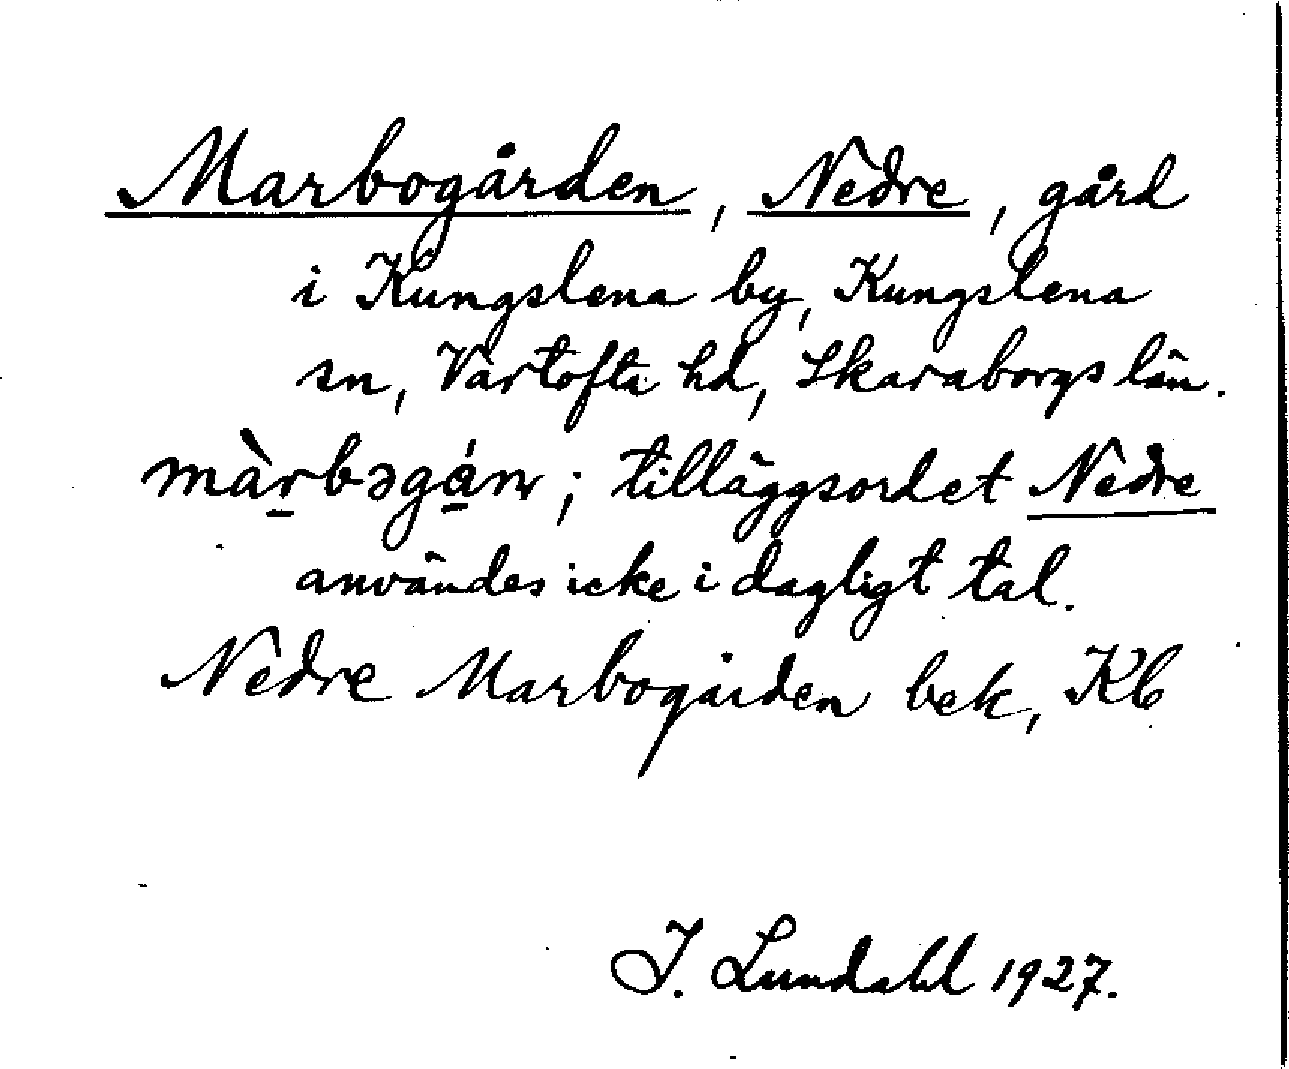 Marbogården, Nedre, gård
i Kungslena by, Kungslena
sn, Vartofta hd, Skaraborgs län.
màrbəgán; tilläggsordet Nedre
användes icke i dagligt tal.
Nedre Marbogården bek, Kb
J. Lundahl 1927.